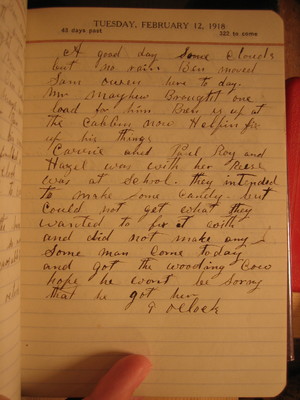 TUESDAY, FEBRUARY 12, 1918
43 days past 322 to come
A good day some clouds
but no rain. Ben moved
Sam Owen here to day.
Mr Mayhew Brought one
load for him Ben is up at
the Cabbin now Helpin fix
up his things
Carrie and Paul Roy and
Hazel was with her
was at School. they intended
to make some candy. but
Could not get what they
wanted to fix it with
and did not make any
Some man Come to day
and got the wooding Cow
hope he wont be sorry
that he got her
9 oclock